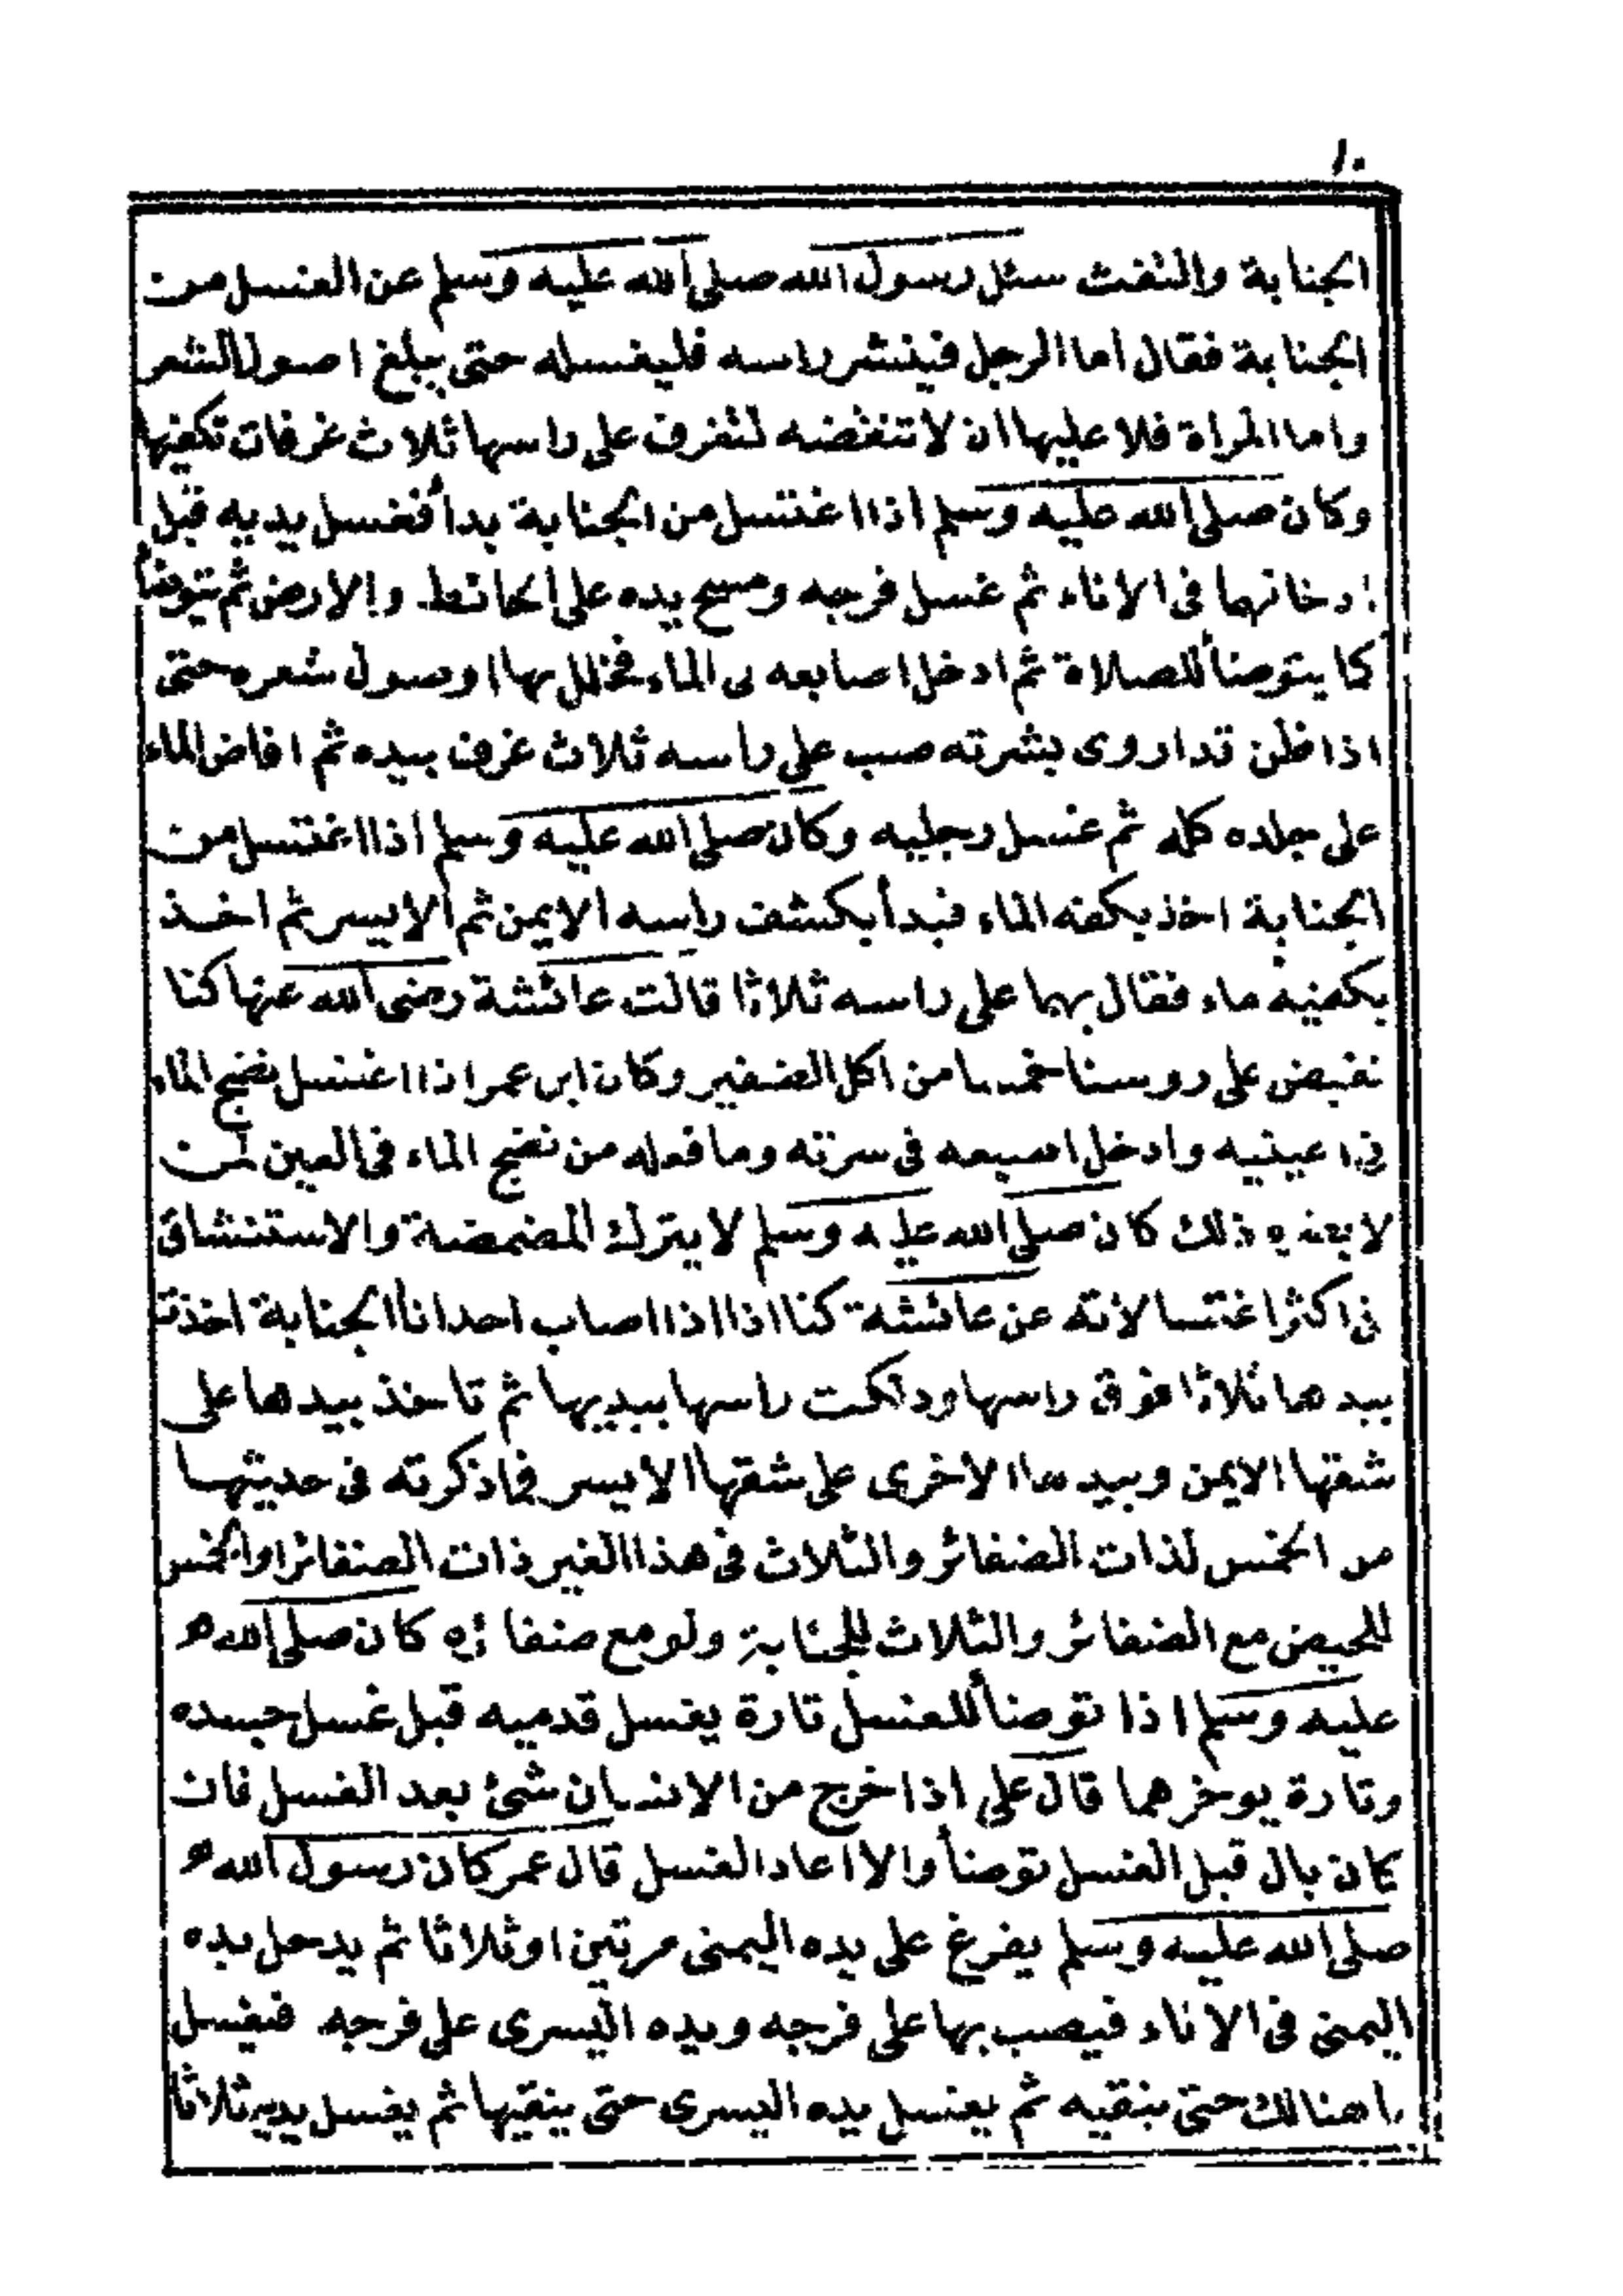 ١٠
الجنابة والنفث سئل رسول الله صلى الله عليه وسلم عن الغسل من
الجنابة فقال اما الرجل فينشر راسه فليغسله حتى يبلغ اصول الشعر
واما المراة فلا عليها ان لا تنقضه لتغرف على راسها ثلاث غرفات تكفيها
وكان صلى الله عليه وسلم اذا اغتسل من الجنابة بدأ فغسل يديه قبل
ادخالهما فى الاناء ثم غسل فرجه ومسح يده على الحائط والارض ثم يتوضأ
كما يتوضأ للصلاة ثم ادخل اصابعه فى الماء فخلل بها اوصول شعره حتى
اذا ظن قد اروى بشرته صب على راسه ثلاث غرف بيده ثم افاض الماء
على جلده كله ثم غسل رجليه وكان صلى الله عليه وسلم اذا اغتسل من
الجنابة اخذ بكفه الماء فبدأ بكشف راسه الايمن ثم الايسر ثم اخذ
بكفيه ماء فقال بهما على راسه ثلاثا قالت عائشة رضى الله عنها كنا
نفيض على روسنا خمسا من اكل الضفير وكان ابن عمر اذا اغتسل نضح الماء
فى اعينيه وادخل اصبعه فى سرته وما فعله من نضح الماء فى العين لمن
لا يعذيه ذلك كان صلى الله عليه وسلم لا يترك المضمضة والاستنشاق
فى اكثر اغتسالاته عن عائشة كنا اذا اذا اصاب احدانا الجنابة اخذت
بيدها ثلاثا فوق راسها ودلكت راسها بيديها ثم تاخذ بيدها على
شقها الايمن وبيدها الاخرى على شقها الايسر فما ذكرته فى حديثها
من الخمس لذات الضفائر والثلاث فى هذا الغير ذات الضفائر او الخمس
للحيض مع الضفائر والثلاث للجنابة ولو مع ضفائره كان صلى الله
عليه وسلم اذا توضأ للغسل تارة يغسل قدميه قبل غسل جسده
وتارة يوخرهما قال على اذا خرج من الانسان شئ بعد الغسل فان
كان بال قبل الغسل توضأ والا اعاد الغسل قال عمر كان رسول الله
صلى الله عليه وسلم يفرغ على يده اليمنى مرتين او ثلاثا ثم يدخل يده
اليمنى فى الاناء فيصب بها على فرجه ويده اليسرى على فرجه فيغسل
ما هنالك حتى ينقيه ثم يغسل يده اليسرى حتى ينقيها ثم يغسل يديه ثلاثا